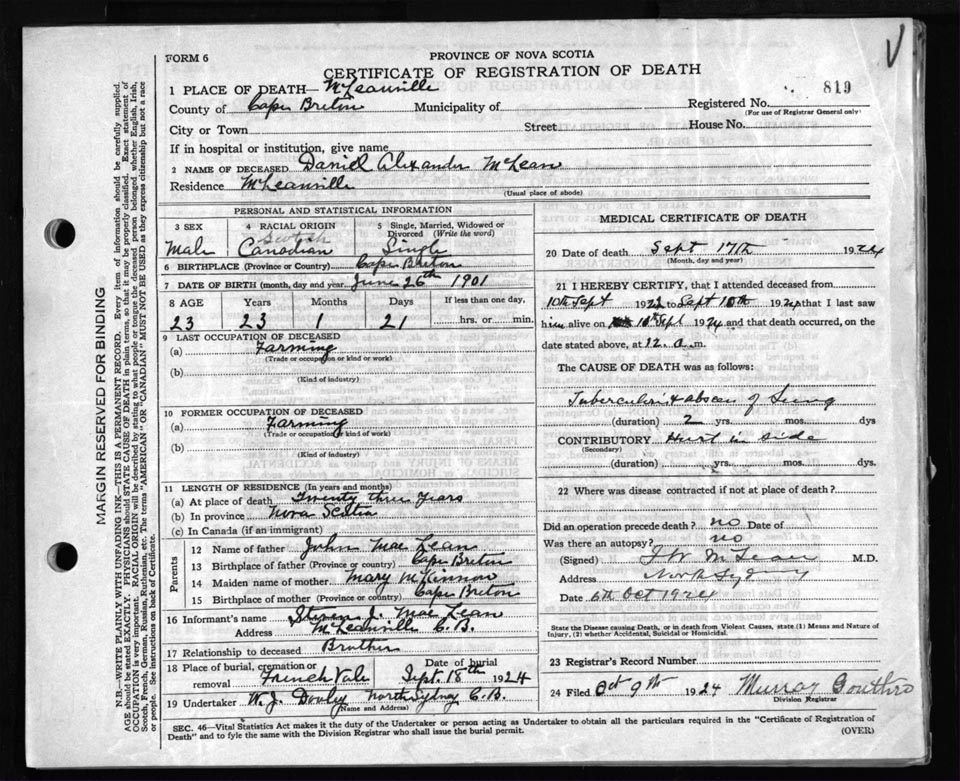 FORM 6
PROVINCE OF NOVA SCOTIA
CERTIFICATE OF REGISTRATION OF DEATH
819
1 PLACE OF DEATH— McLeanville
County of Cape Breton Municipality of Registered No.
(For use of Registrar General only)
City or Town Street House No.
If in hospital or institution, give name
2 NAME OF DECEASED Daniel Alexander McLean
Residence McLeanville
(Usual place of abode)
PERSONAL AND STATISTICAL INFORMATION
3 SEX 4 RACIAL ORIGIN 5 Single, Married, Widowed or Divorced (Write the word)
Scotch
Male Canadian Single
6 BIRTHPLACE (Province or Country) Cape Breton
7 DATE OF BIRTH (month, day and year) June 26th 1901
8 AGE Years Months Days If less than one day,
23 23 1 21 hrs. or min.
9 LAST OCCUPATION OF DECEASED
(a) Farming
(Trade or occupation or kind or work)
(b)
(Kind of industry)
10 FORMER OCCUPATION OF DECEASED
(a) Farming
(Trade or occupation or kind of work)
(b)
(Kind of industry)
11 LENGTH OF RESIDENCE (In years and months)
(a) At place of death Twenty three Years
(b) In province Nova Scotia
(c) In Canada (if an immigrant)
Parents
12 Name of father John MacLean
13 Birthplace of father (Province or country) Cape Breton
14 Maiden name of mother Mary McKinnon
15 Birthplace of mother (Province or country) Cape Breton
16 Informant's name J. MacLean
Address McLeanville C.B.
17 Relationship to deceased Brother
18 Place of burial, cremation or removal French Vale Date of burial Sept. 18th 1924
19 Undertaker W. J. Dooley North Sydney C.B.
(Name and Address)
MEDICAL CERTIFICATE OF DEATH
20 Date of death Sept 17th 1924
(Month, day and year)
21 I HEREBY CERTIFY, that I attended deceased from
10th Sept 192 to Sept 10th 1924 that I last saw
him alive on 10th Sept 1924 and that death occurred, on
the date stated above, at 12 a.m.
The CAUSE OF DEATH was as follows:
Tuberculosis & abscess of Lung
(duration) 2 yrs. mos. dys
CONTRIBUTORY Hurt in side
(Secondary)
(duration) yrs. mos. dys.
22 Where was disease contracted if not at place of death?
Did an operation precede death? no Date of
Was there an autopsy? no
(Signed) McLean M.D.
Address North Sydney
Date 6th Oct 1924
State the Disease causing Death, or in death from Violent Causes, state (1) Means and Nature of
Injury, (2) whether Accidental, Suicidal or Homicidal.
23 Registrar's Record Number
24 Filed Oct 9th 1924 Murray Gouthro
Division Registrar
SEC. 46—Vital Statistics Act makes it the duty of the Undertaker or person acting as Undertaker to obtain all the particulars required in the "Certificate of Registration of
Death" and to fyle the same with the Division Registrar who shall issue the burial permit.
(OVER)
MARGIN RESERVED FOR BINDING
N.B.—WRITE PLAINLY WITH UNFADING INK—THIS IS A PERMANENT RECORD. Every item of information should be carefully supplied.
AGE should be stated EXACTLY. PHYSICIANS should STATE CAUSE OF DEATH in plain terms, so that it may be properly classified. Exact statement of
OCCUPATION is very important. RACIAL ORIGIN will be described by stating to what people or tongue the deceased person belonged, whether English, Irish,
Scotch, French, German, Russian, Ruthenian, etc. The terms "AMERICAN" OR "CANADIAN" MUST NOT BE USED as they express citizenship but not a race
or people. See instructions on back of Certificate.